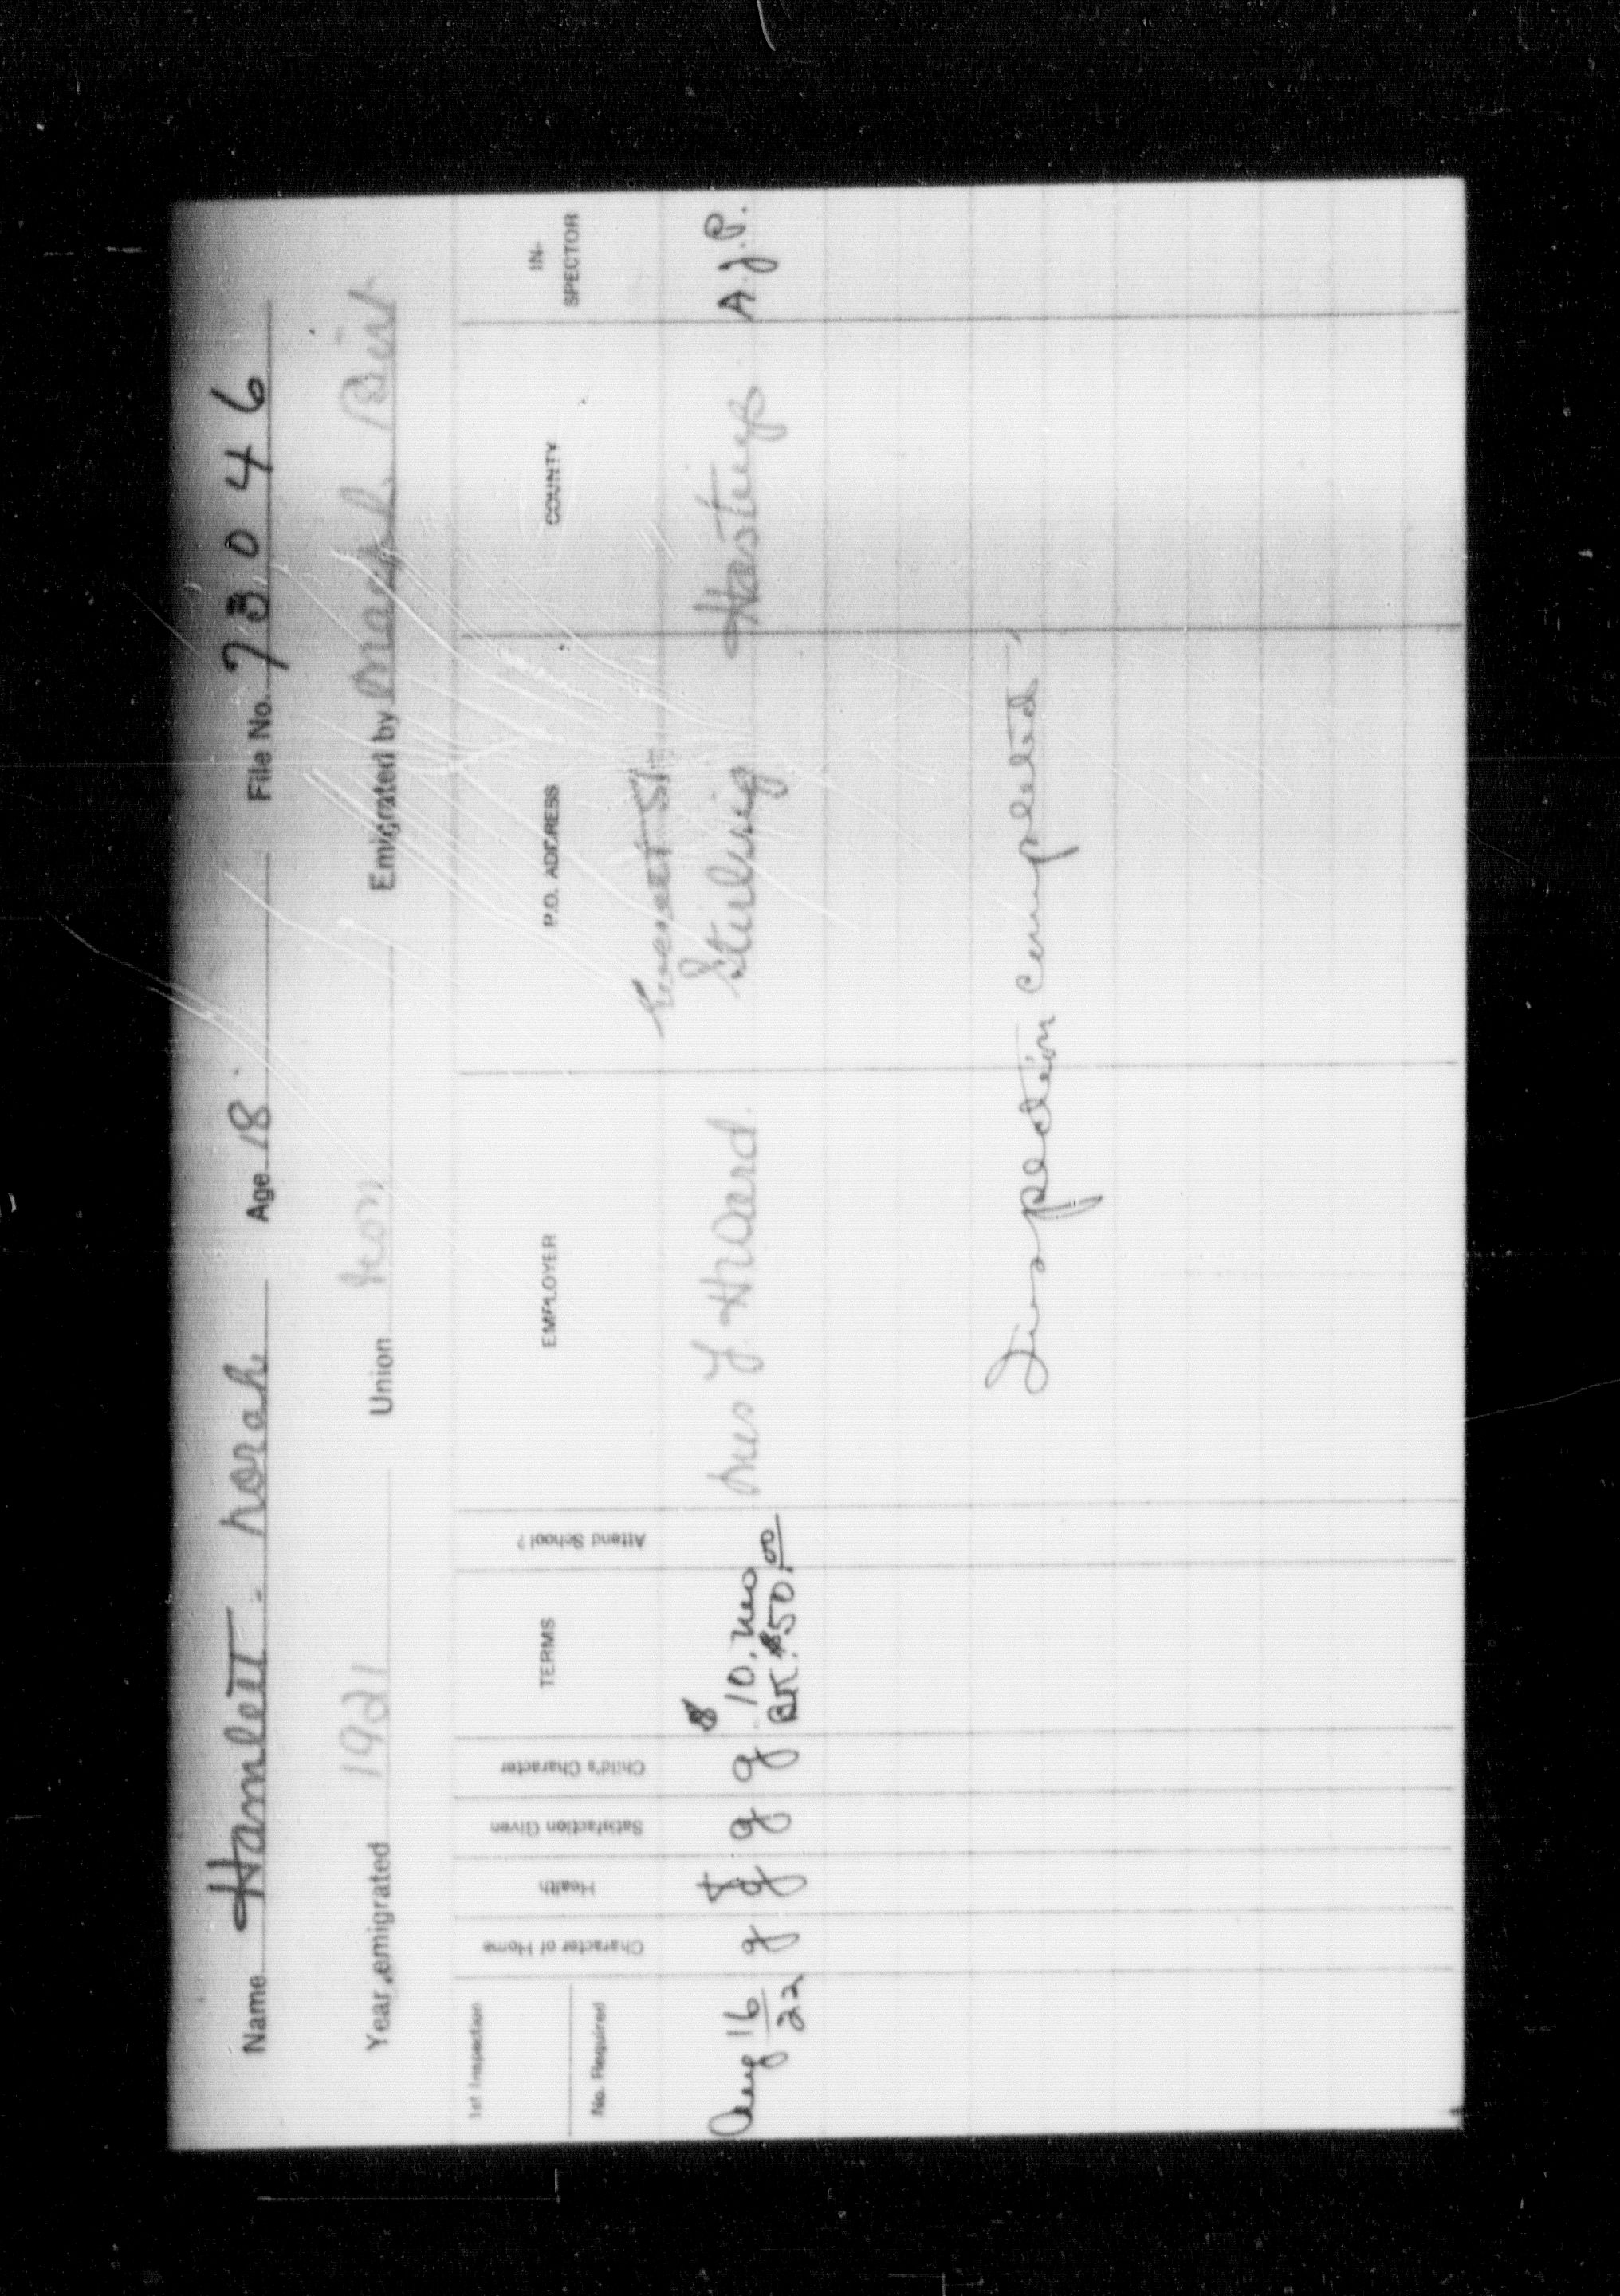 Name Hamlett. Norah Age 18 File No. 73046
Year emigrated 1921 Union Non Emigrated by
1st Inspection
No. Required
Character of Home
Health
Satisfaction Given
Child's Character
TERMS
Attend School?
EMPLOYER
P.O. ADDRESS
COUNTY
IN-
SPECTOR
Aug 16
22
g g g g
$ 10. mo
BK. $50.00
Mrs
St.
Stirling
Hastings
A.J.P.
Inspection completed